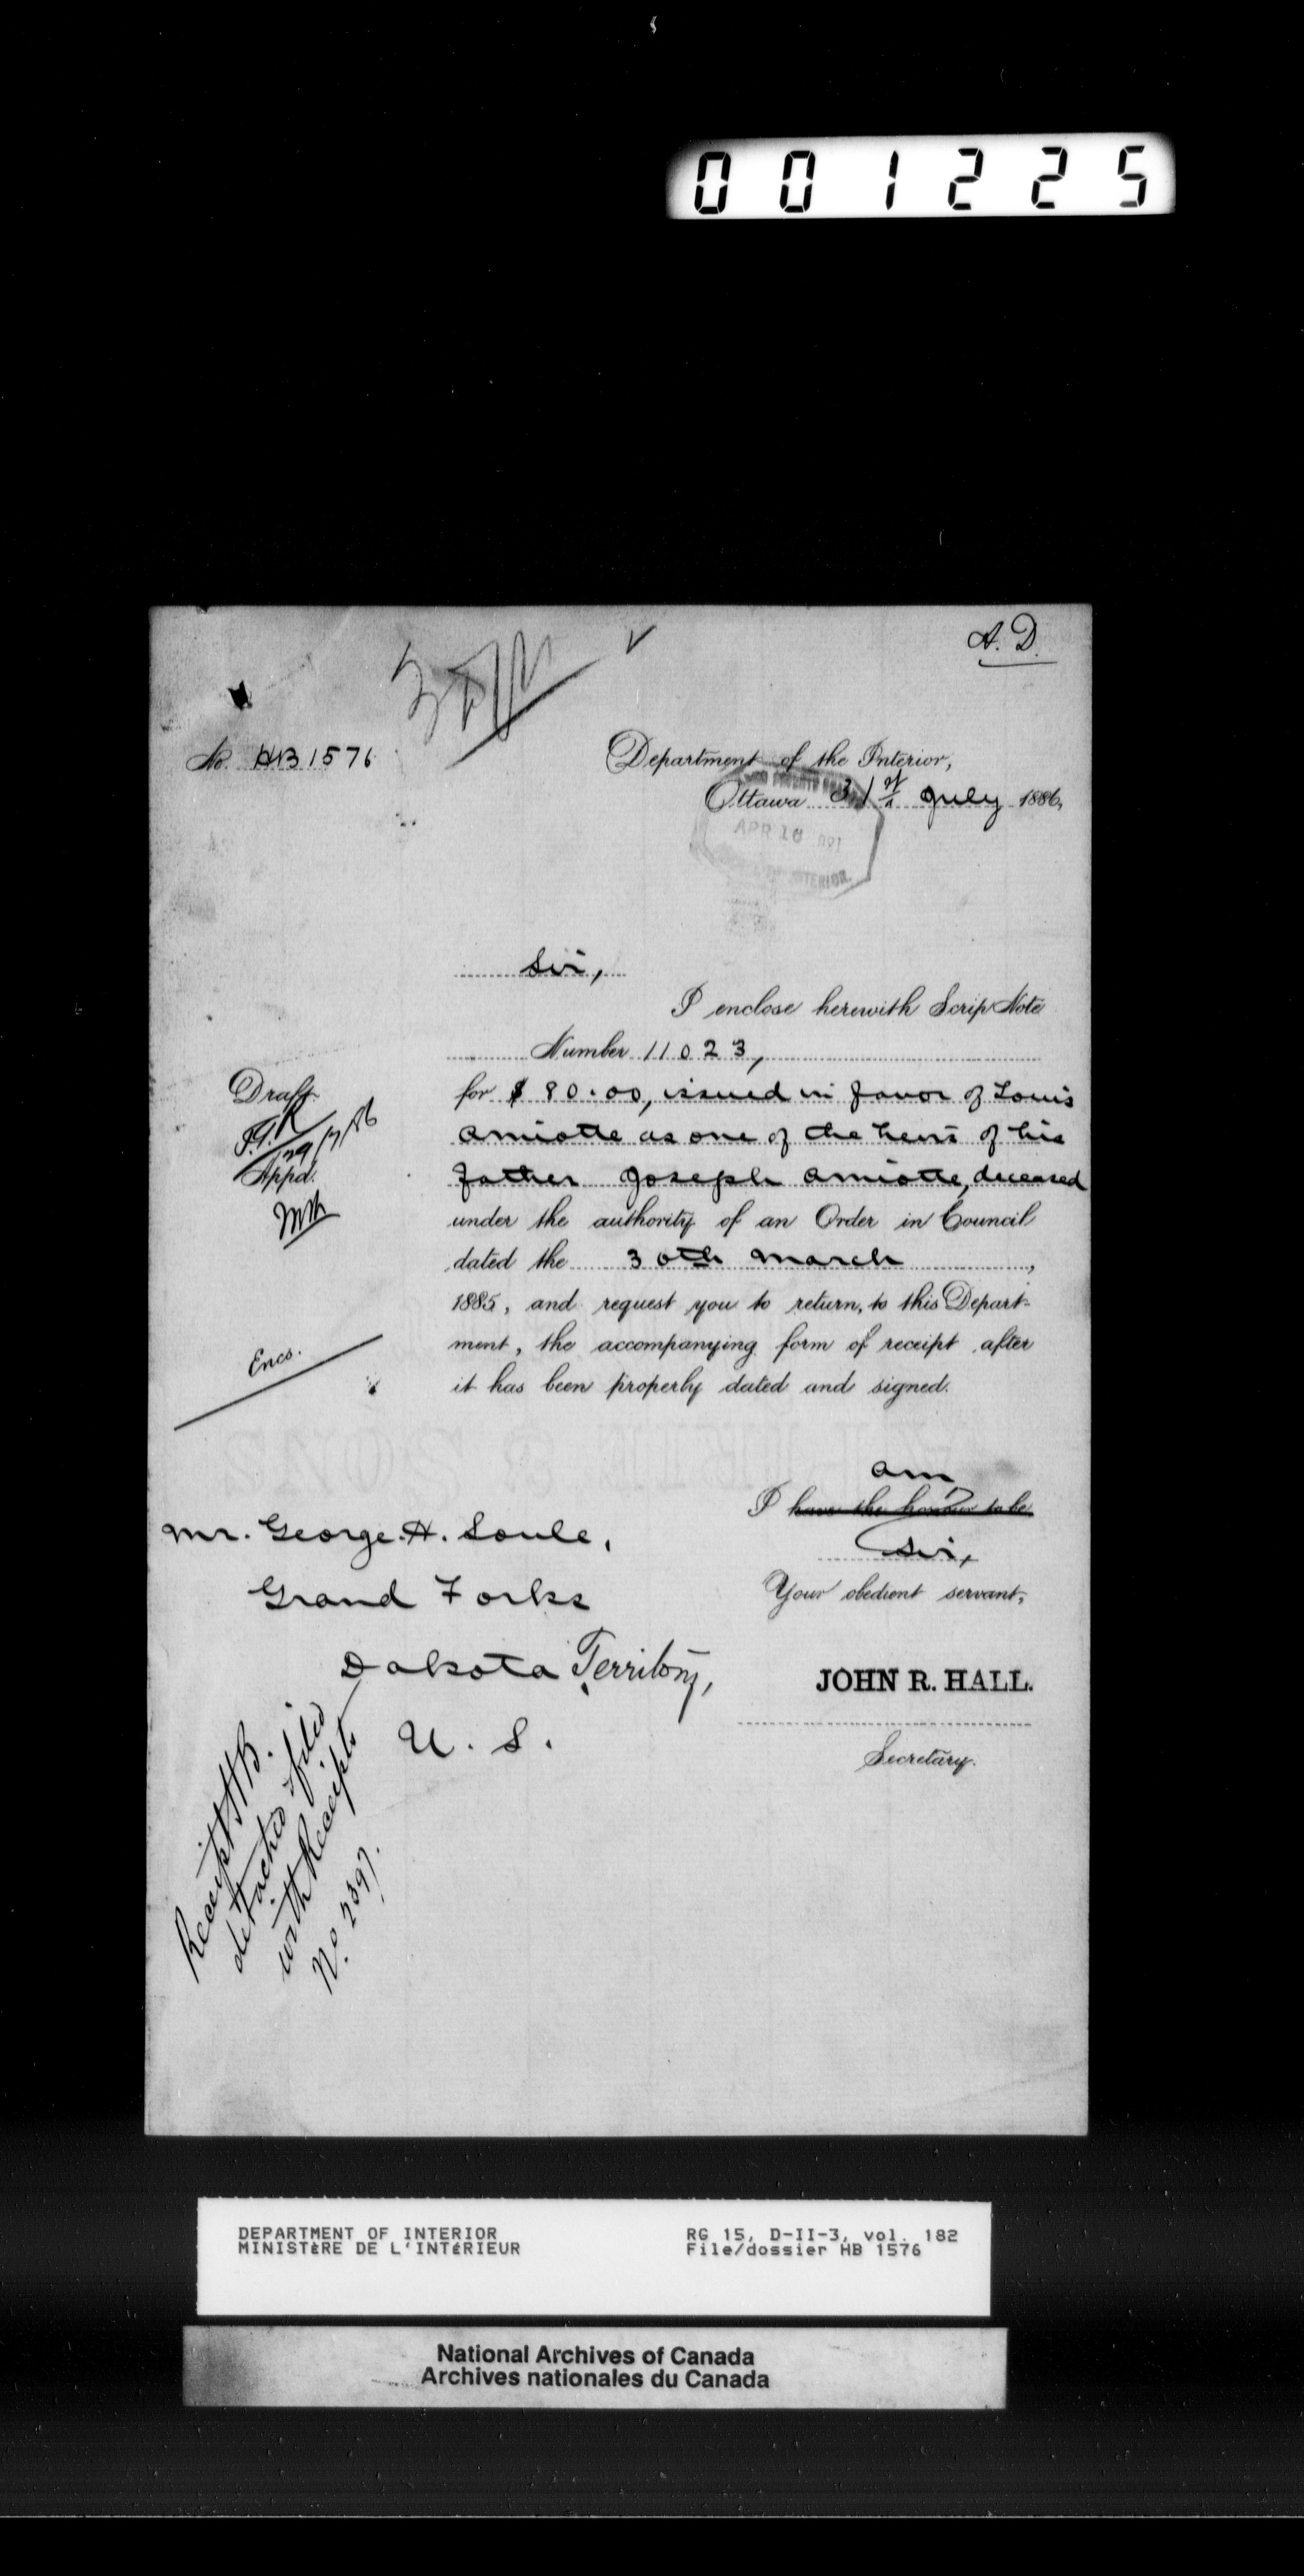 001225
A. D.
No. HB 1576
Department of the Interior,
Ottawa 31st July 1886,
APR 10
INTERIOR.
Sir,
I enclose herewith Scrip Note
Number 11023,
for $ 80.00, issued in favor of Louis
Amiotte as one of the heirs of his
father Joseph Amiotte, deceased
under the authority of an Order in Council
dated the 30th March,
1885, and request you to return, to this Depart-
ment, the accompanying form of receipt after
it has been properly dated and signed.
Draft
29/7/86
Appd.
Encs.
am
I have the honour to be
Sir,
Your obedient servant,
JOHN R. HALL.
Secretary.
Mr. George H. Soule,
Grand Forks
Dakota Territory,
U. S.
Receipt HB.
detached & filed
with Receipts
No. 2397.
DEPARTMENT OF INTERIOR
MINISTÈRE DE L'INTÉRIEUR
RG 15, D-II-3, vol. 182
File/dossier HB 1576
National Archives of Canada
Archives nationales du Canada